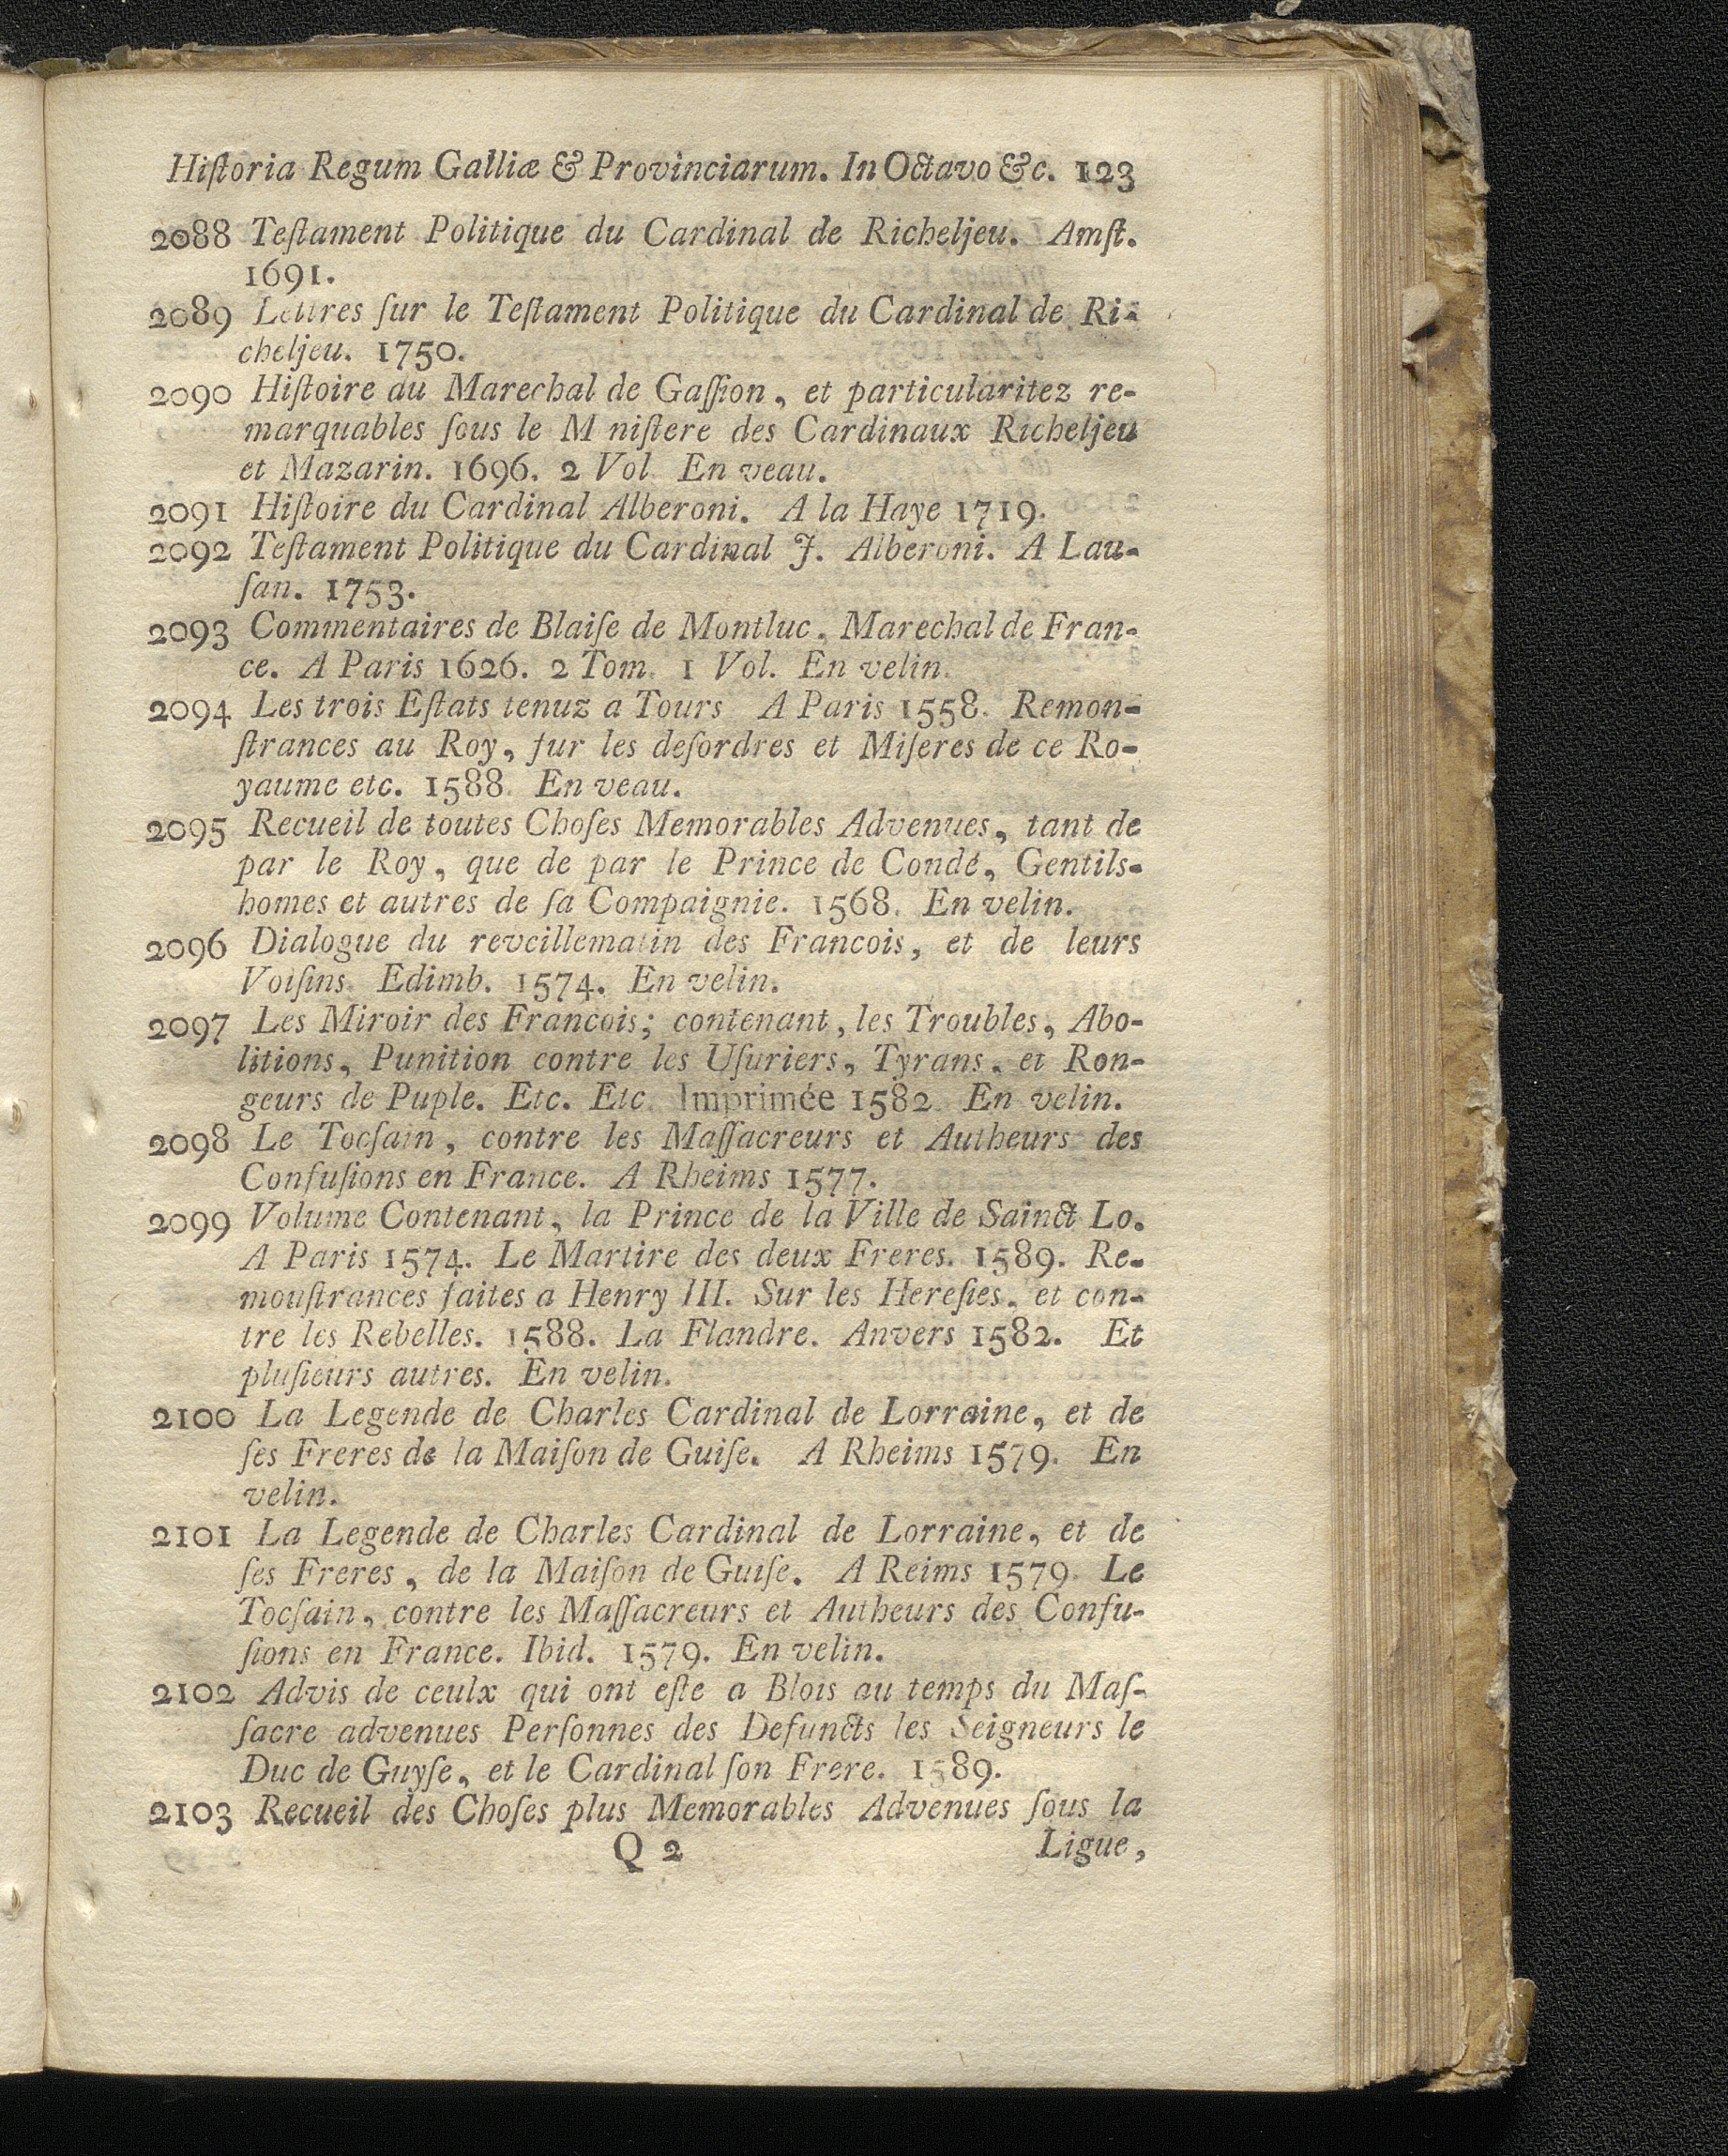 Hiſtoria Regum Galliæ & Provinciarum. In Octavo &c. 123
2088 Teſtament Politique du Cardinal de Richeljeu. Amſt.
1691.
2089 Lettres ſur le Teſtament Politique du Cardinal de Ri-
cheljeu. 1750.
2090 Hiſtoire du Marechal de Gaſſion, et particularitez re-
marquables ſous le M niſtere des Cardinaux Richeljeu
et Mazarin. 1696. 2 Vol En veau.
2091 Hiſtoire du Cardinal Alberoni. A la Haye 1719.
2092 Teſtament Politique du Cardinal J. Alberoni. A Lau-
ſan. 1753.
2093 Commentaires de Blaiſe de Montluc, Marechal de Fran-
ce. A Paris 1626. 2 Tom. 1 Vol. En velin.
2094 Les trois Eſtats tenuz a Tours A Paris 1558. Remon-
ſtrances au Roy, ſur les deſordres et Miſeres de ce Ro-
yaume etc. 1588. En veau.
2095 Recueil de toutes Choſes Memorables Advenues, tant de
par le Roy, que de par le Prince de Condé, Gentils-
homes et autres de ſa Compaignie. 1568. En velin.
2096 Dialogue du reveillematin des Francois, et de leurs
Voiſins. Edimb. 1574. En velin.
2097 Les Miroir des Francois; contenant, les Troubles, Abo-
litions, Punition contre les Uſuriers, Tyrans, et Ron-
geurs de Puple. Etc. Etc. Imprimée 1582. En velin.
2098 Le Tocſain, contre les Maſſacreurs et Autheurs des
Confuſions en France. A Rheims 1577.
2099 Volume Contenant, la Prince de la Ville de Sainct Lo.
A Paris 1574. Le Martire des deux Freres. 1589. Re-
mouſtrances faites a Henry III. Sur les Hereſies, et con-
tre les Rebelles. 1588. La Flandre. Anvers 1582. Et
pluſieurs autres. En velin.
2100 La Legende de Charles Cardinal de Lorraine, et de
ſes Freres de la Maiſon de Guiſe. A Rheims 1579. En
velin.
2101 La Legende de Charles Cardinal de Lorraine, et de
ſes Freres, de la Maiſon de Guiſe. A Reims 1579. Le
Tocſain, contre les Maſſacreurs et Autheurs des Confu-
ſions en France. Ibid. 1579. En velin.
2102 Advis de ceulx qui ont eſte a Blois au temps du Maſ-
ſacre advenues Perſonnes des Defuncts les Seigneurs le
Duc de Guyſe, et le Cardinal ſon Frere. 1589.
2103 Recueil des Choſes plus Memorables Advenues ſous la
Q 2 Ligue,